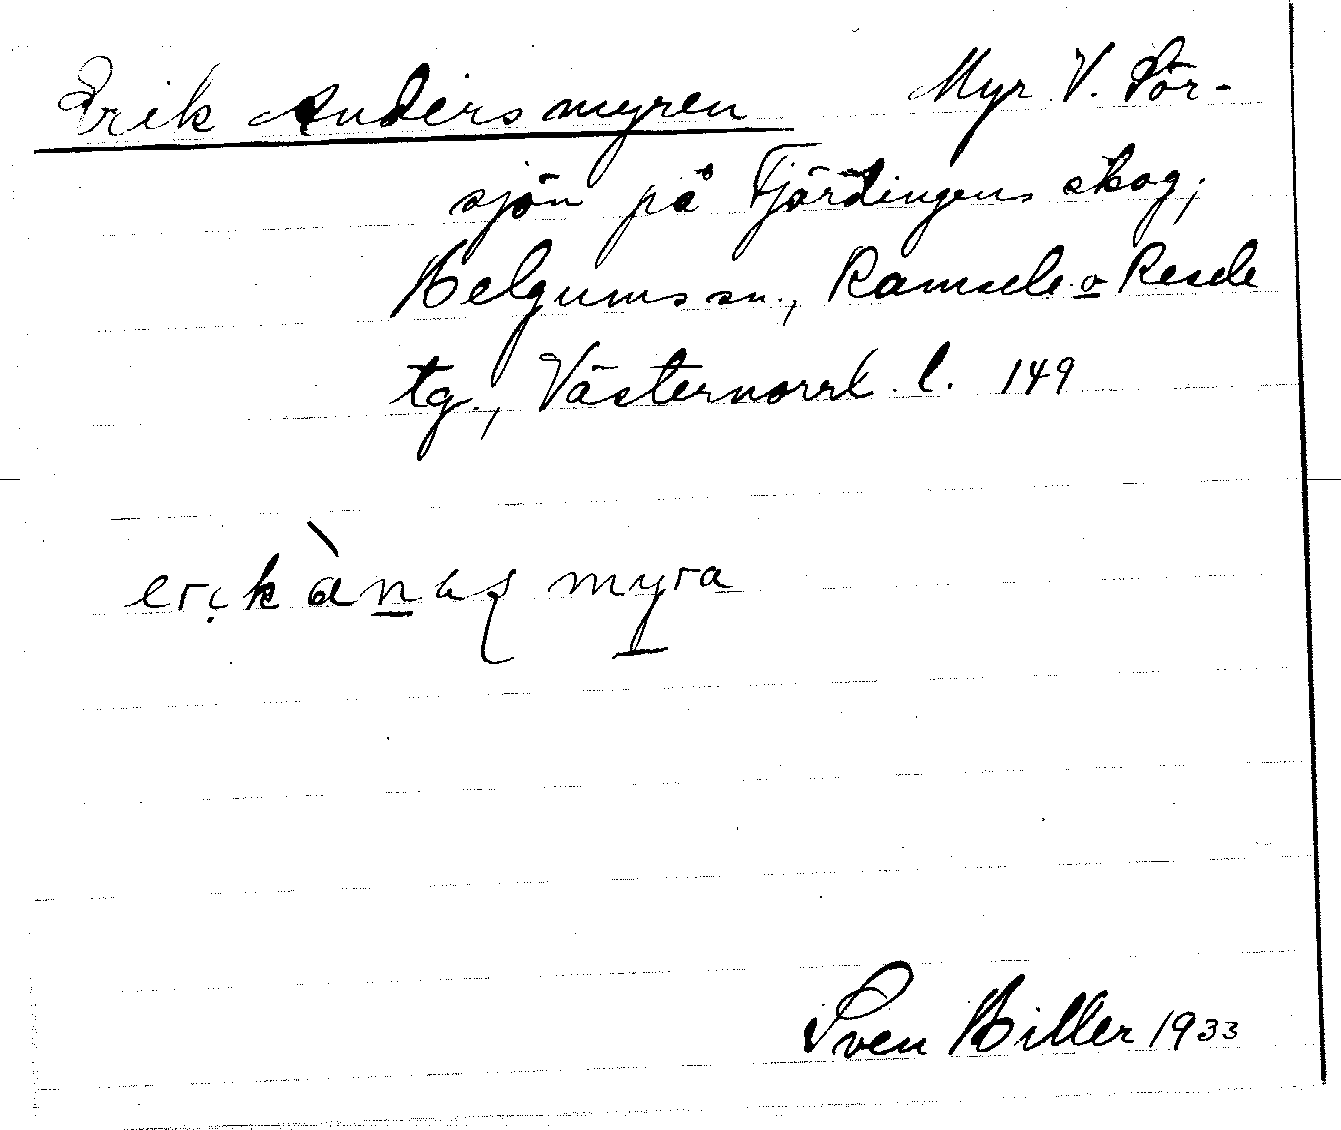 Erik Andersmyren Myr V. Sör-
sjön på Fjärdingens skog,
Helgums sn., Ramsele o Resele
tg., Västernorrl. l. 149
Sven Hiller 1933